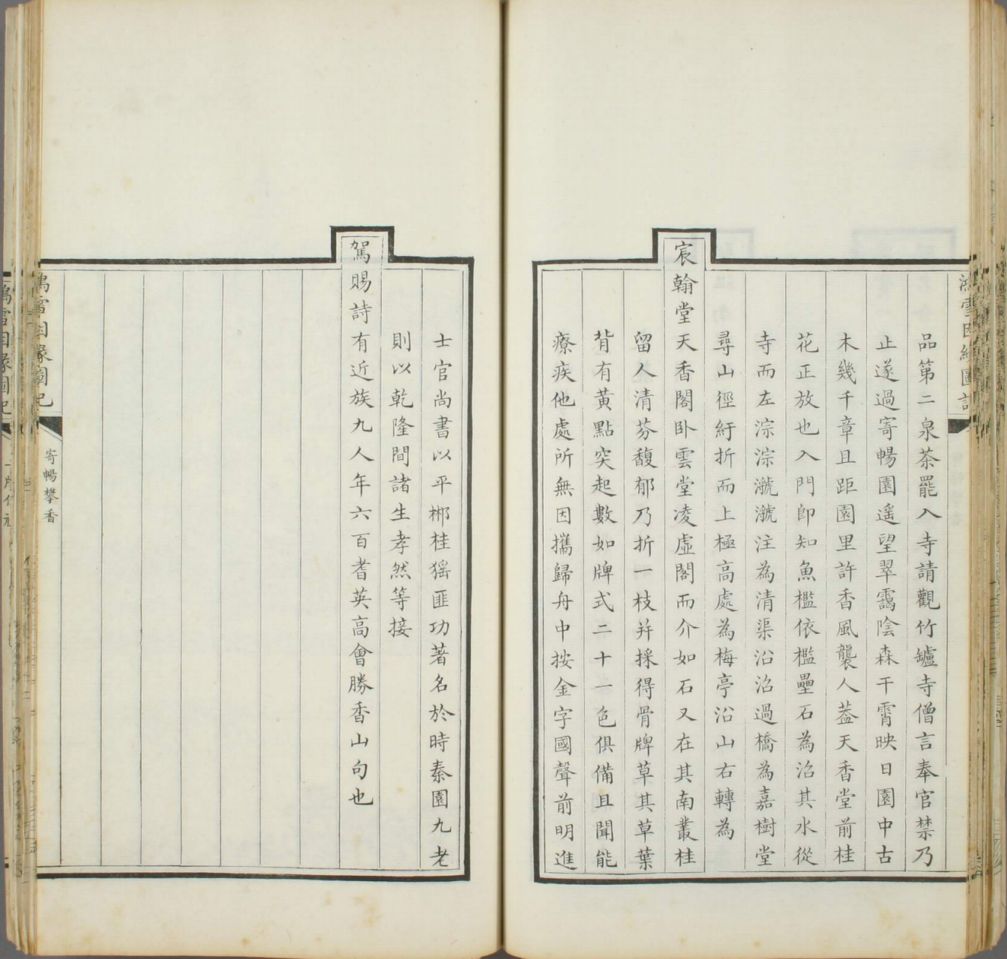 鴻雪因緣圖記
品第二泉茶罷入寺請觀竹鑪寺僧言奉官禁乃
止遂過寄暢園遙望翠靄陰森干霄映日園中古
木幾千章且距園里許香風襲人葢天香堂前桂
花正放也入門卽知魚檻依檻壘石為沼其水從
寺而左淙淙漉漉注為清渠沿沼過橋為嘉樹堂
尋山徑紆折而上極高處為梅亭沿山右轉為
宸翰堂天香閣卧雲堂凌虛閣而介如石又在其南叢桂
留人清芬馥郁乃折一枝并採得骨牌草其草葉
背有黃點突起數如牌式二十一色俱備且聞能
療疾他處所無因攜歸舟中按金字國聲前明進
士官尚書以平郴桂猺匪功著名於時秦園九老
則以乾隆間諸生孝然等接
駕賜詩有近族九人年六百耆英高會勝香山句也
鴻雪因緣圖記
寄暢攀香
鴻雪因緣圖記